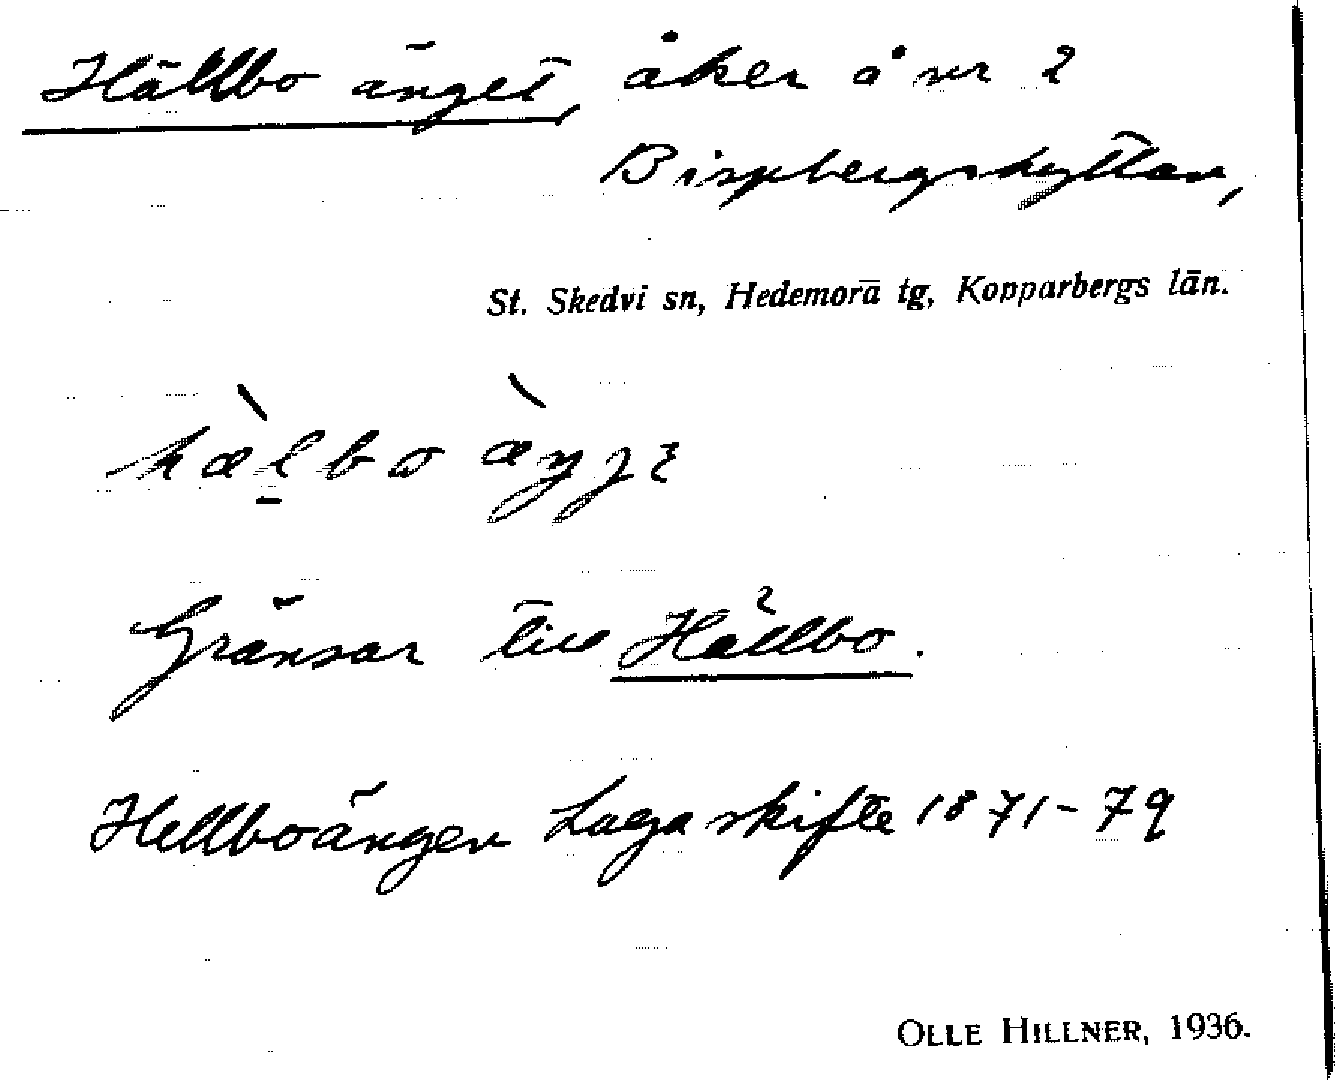 Hällbo änget, åker å nr 2
Bispbergshyttan,
St. Skedvi sn, Hedemora tg, Kopparbergs län.
hæ̀l̠bo æ̀ŋʒɛ
Gränsar till Hällbo.
Hellboängen Laga skifte 1871-79
OLLE HILLNER, 1936.